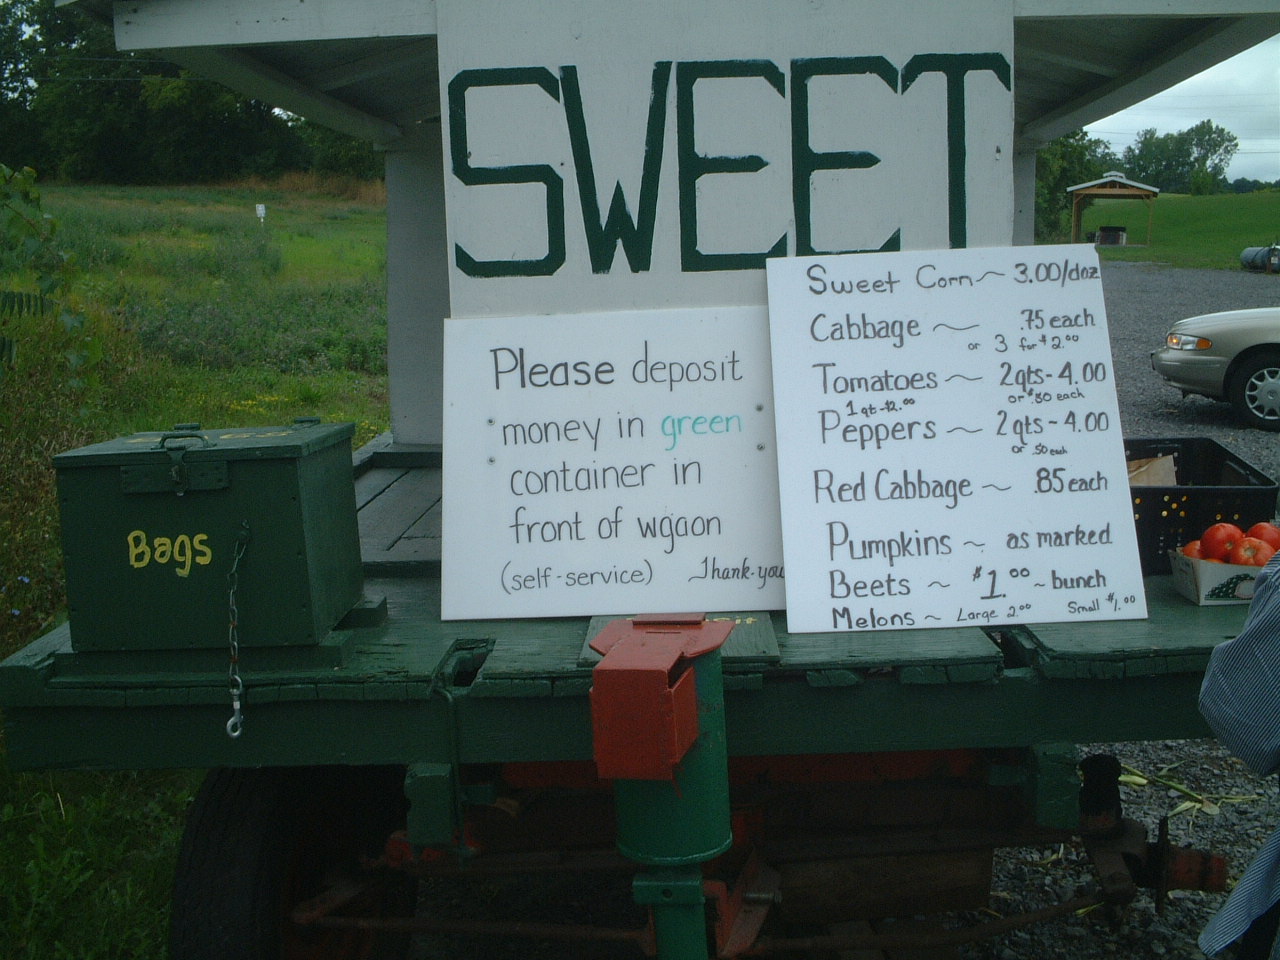 SWEET
Please deposit
money in green
container in
front of wgaon
(self-service) Thank-you
Sweet Corn ~ 3.00/doz
Cabbage ~ .75 each
or 3 for $2.00
Tomatoes ~ 2qts - 4.00
1 qt - $2.00 or $.50 each
Peppers ~ 2qts - 4.00
or .50 each
Red Cabbage ~ .85 each
Pumpkins ~ as marked
Beets ~ $1.00 ~ bunch
Melons ~ Large 2.00 Small $1.00
Bags